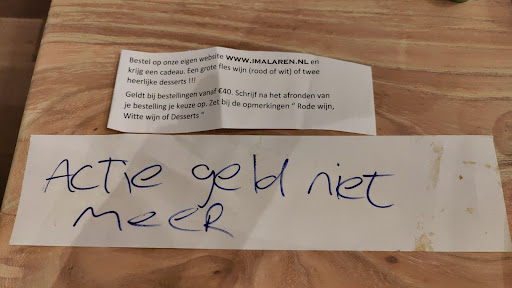 Bestel op onze eigen website WWW.IMALAREN.NL en
krijg een cadeau. Een grote fles wijn (rood of wit) of twee
heerlijke desserts !!!
Geldt bij bestellingen vanaf €40. Schrijf na het afronden van
je bestelling je keuze op. Zet bij de opmerkingen " Rode wijn,
Witte wijn of Desserts "
Actie geld niet
meer